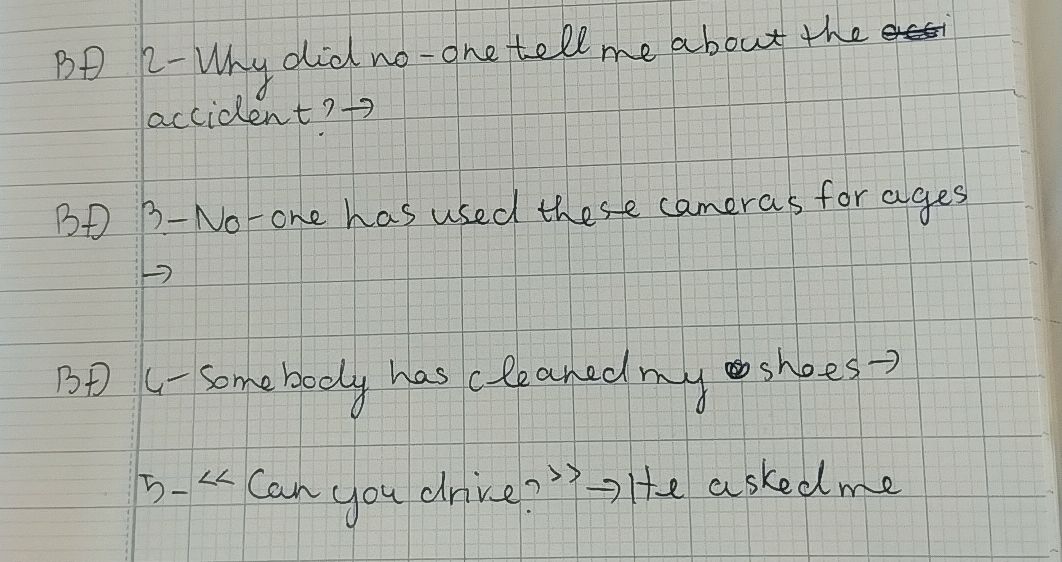 BĐ 2-Why did no-one tell me about the acci
accident? →
BĐ 3-No-one has used these cameras for ages
→
BĐ 4-Somebody has cleaned my shoes →
5- << Can you drive? >> → He asked me